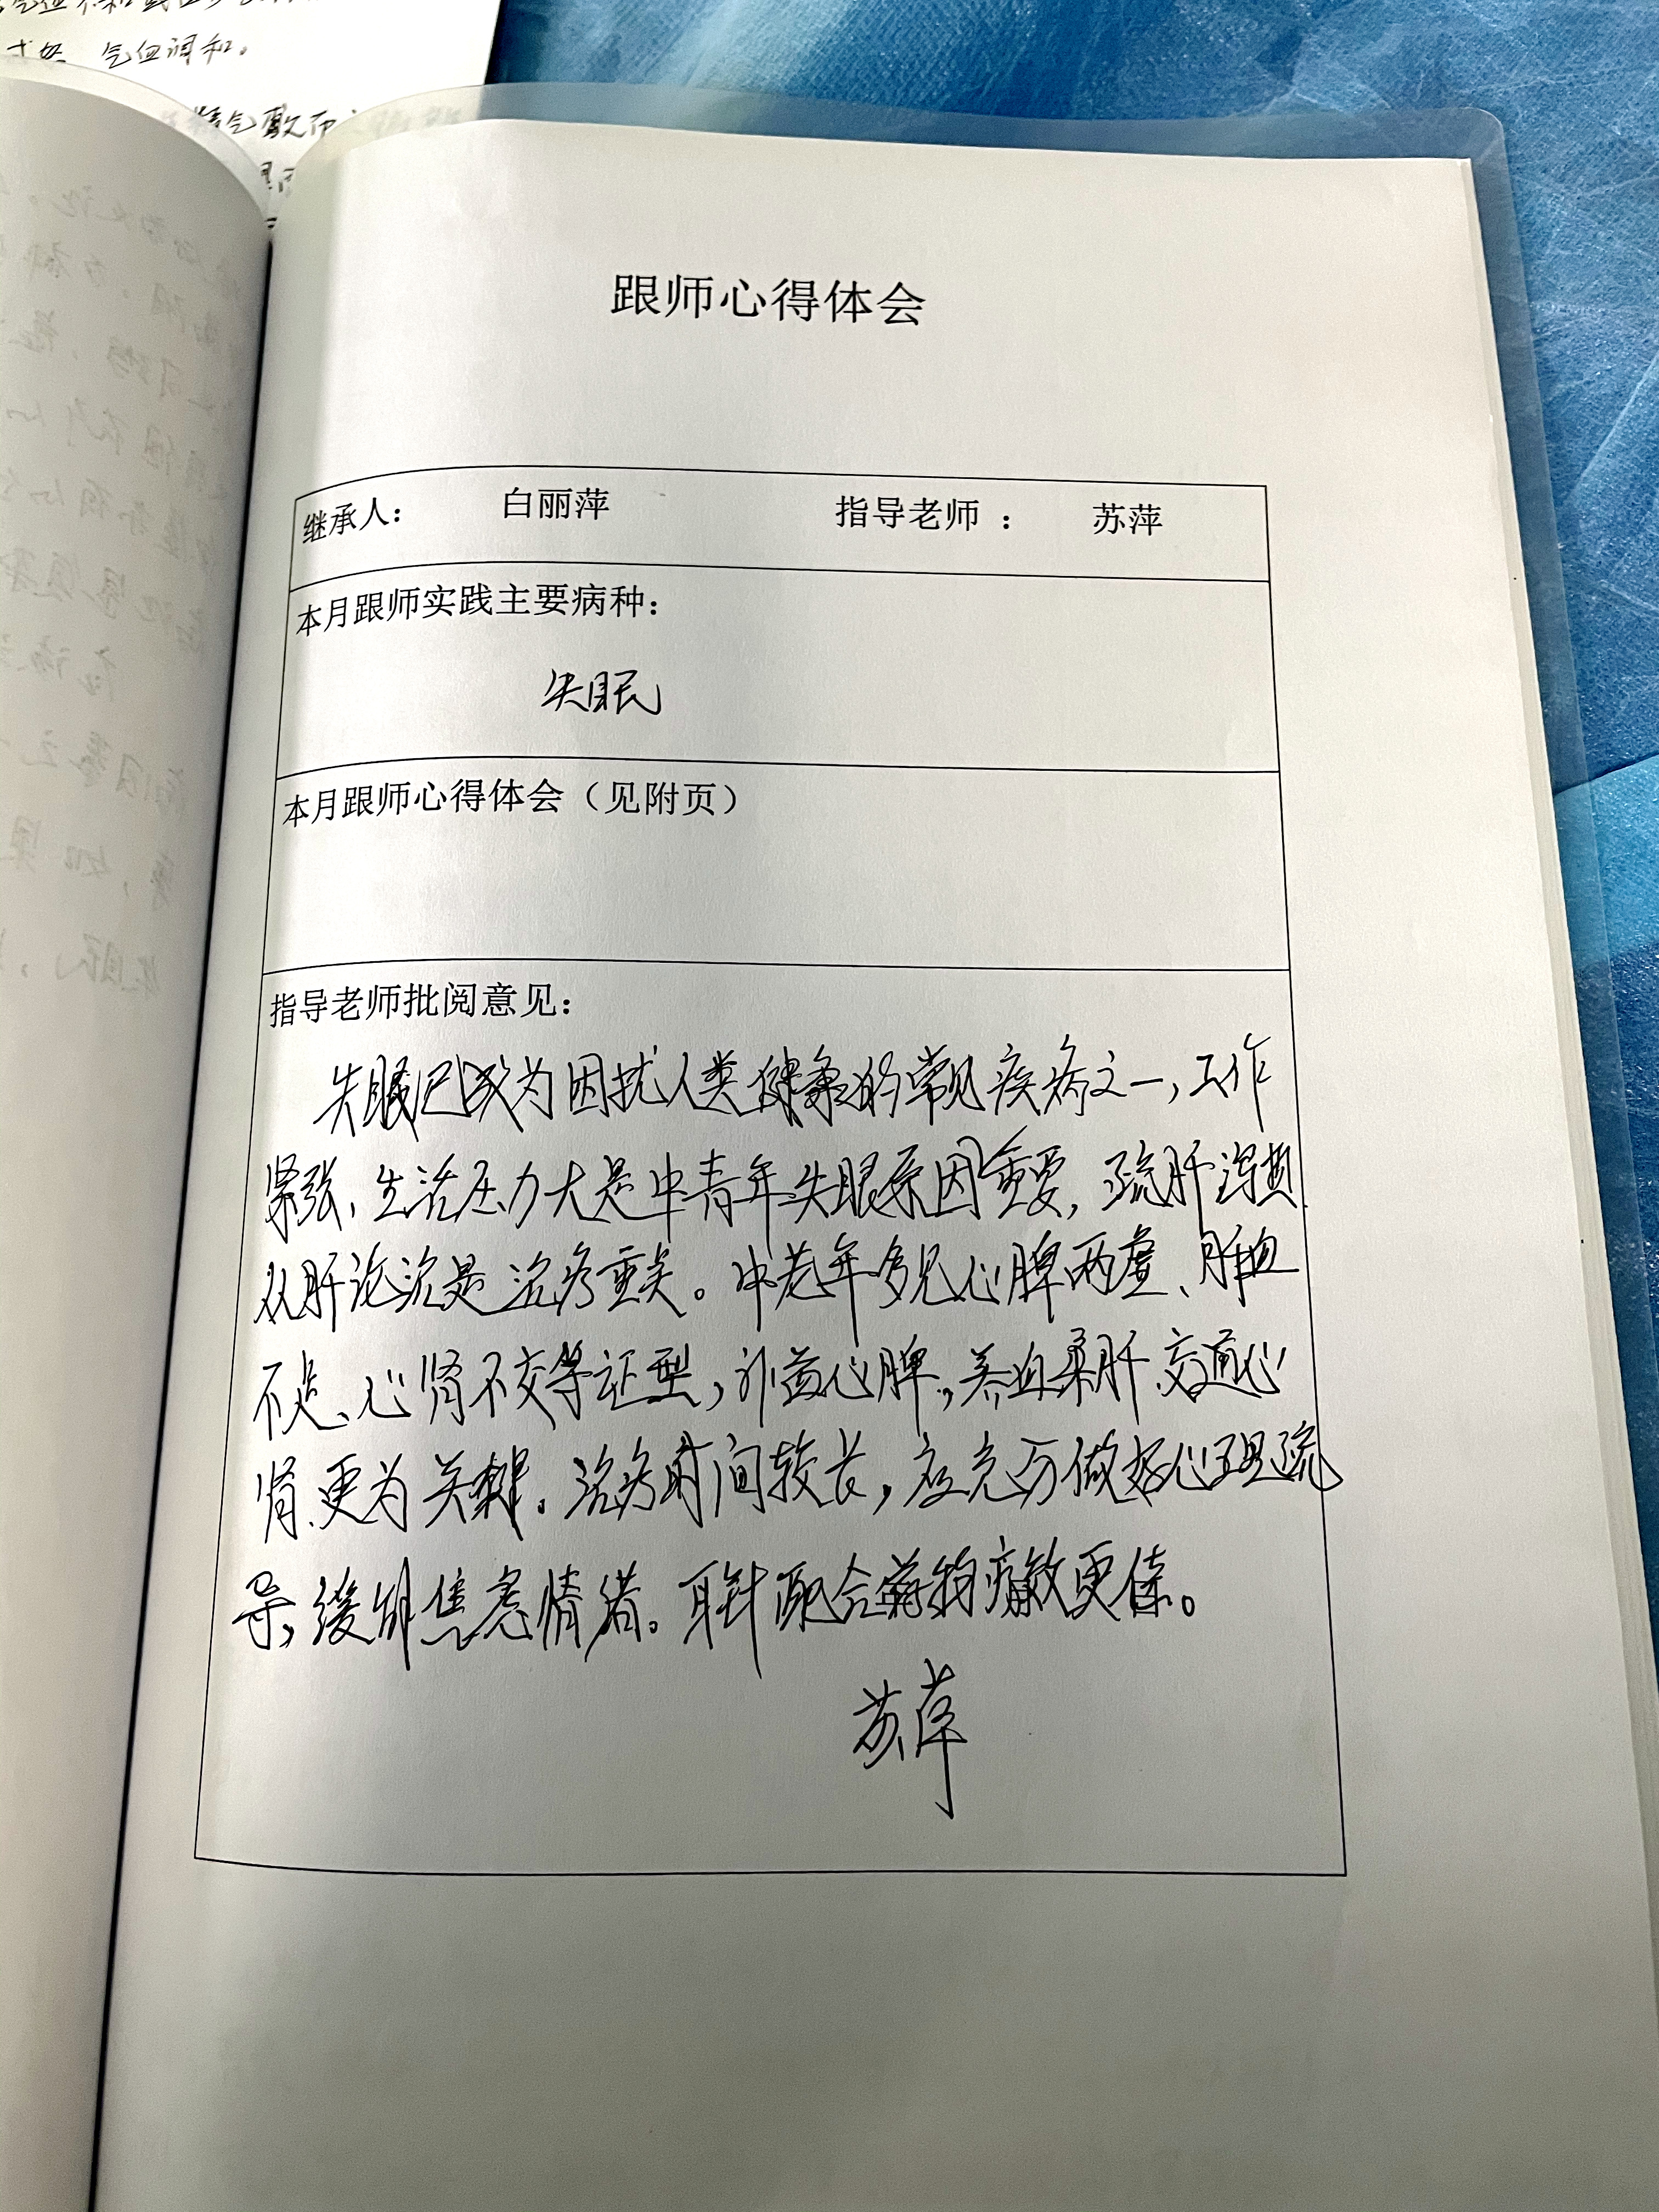 气血调和。
精气
跟师心得体会
继承人： 白丽萍 指导老师 ： 苏萍
本月跟师实践主要病种：
失眠
本月跟师心得体会（见附页）
指导老师批阅意见：
失眠已成为困扰人类健康的常见疾病之一，工作
紧张、生活压力大是中青年失眠原因重要，疏肝泻热
从肝论治是治疗重点。中老年多见心脾两虚、肝血
不足、心肾不交等证型，补益心脾，养血柔肝、交通心
肾更为关键。治疗时间较长，应充分做好心理疏
导，缓解焦虑情绪。耳针配合药物疗效更佳。
苏萍